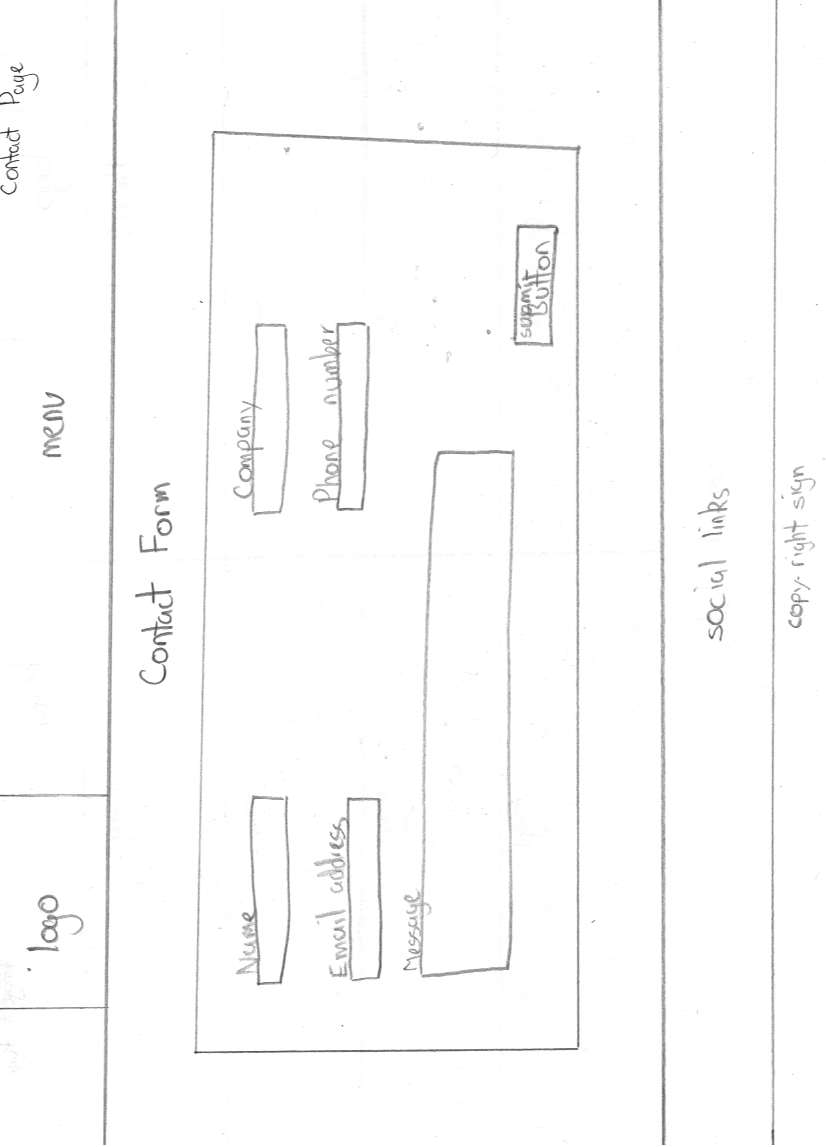 Contact Page
logo
menu
Contact Form
Name
Company
Email address
Phone number
Message
submit
Button
social links
copy right sign